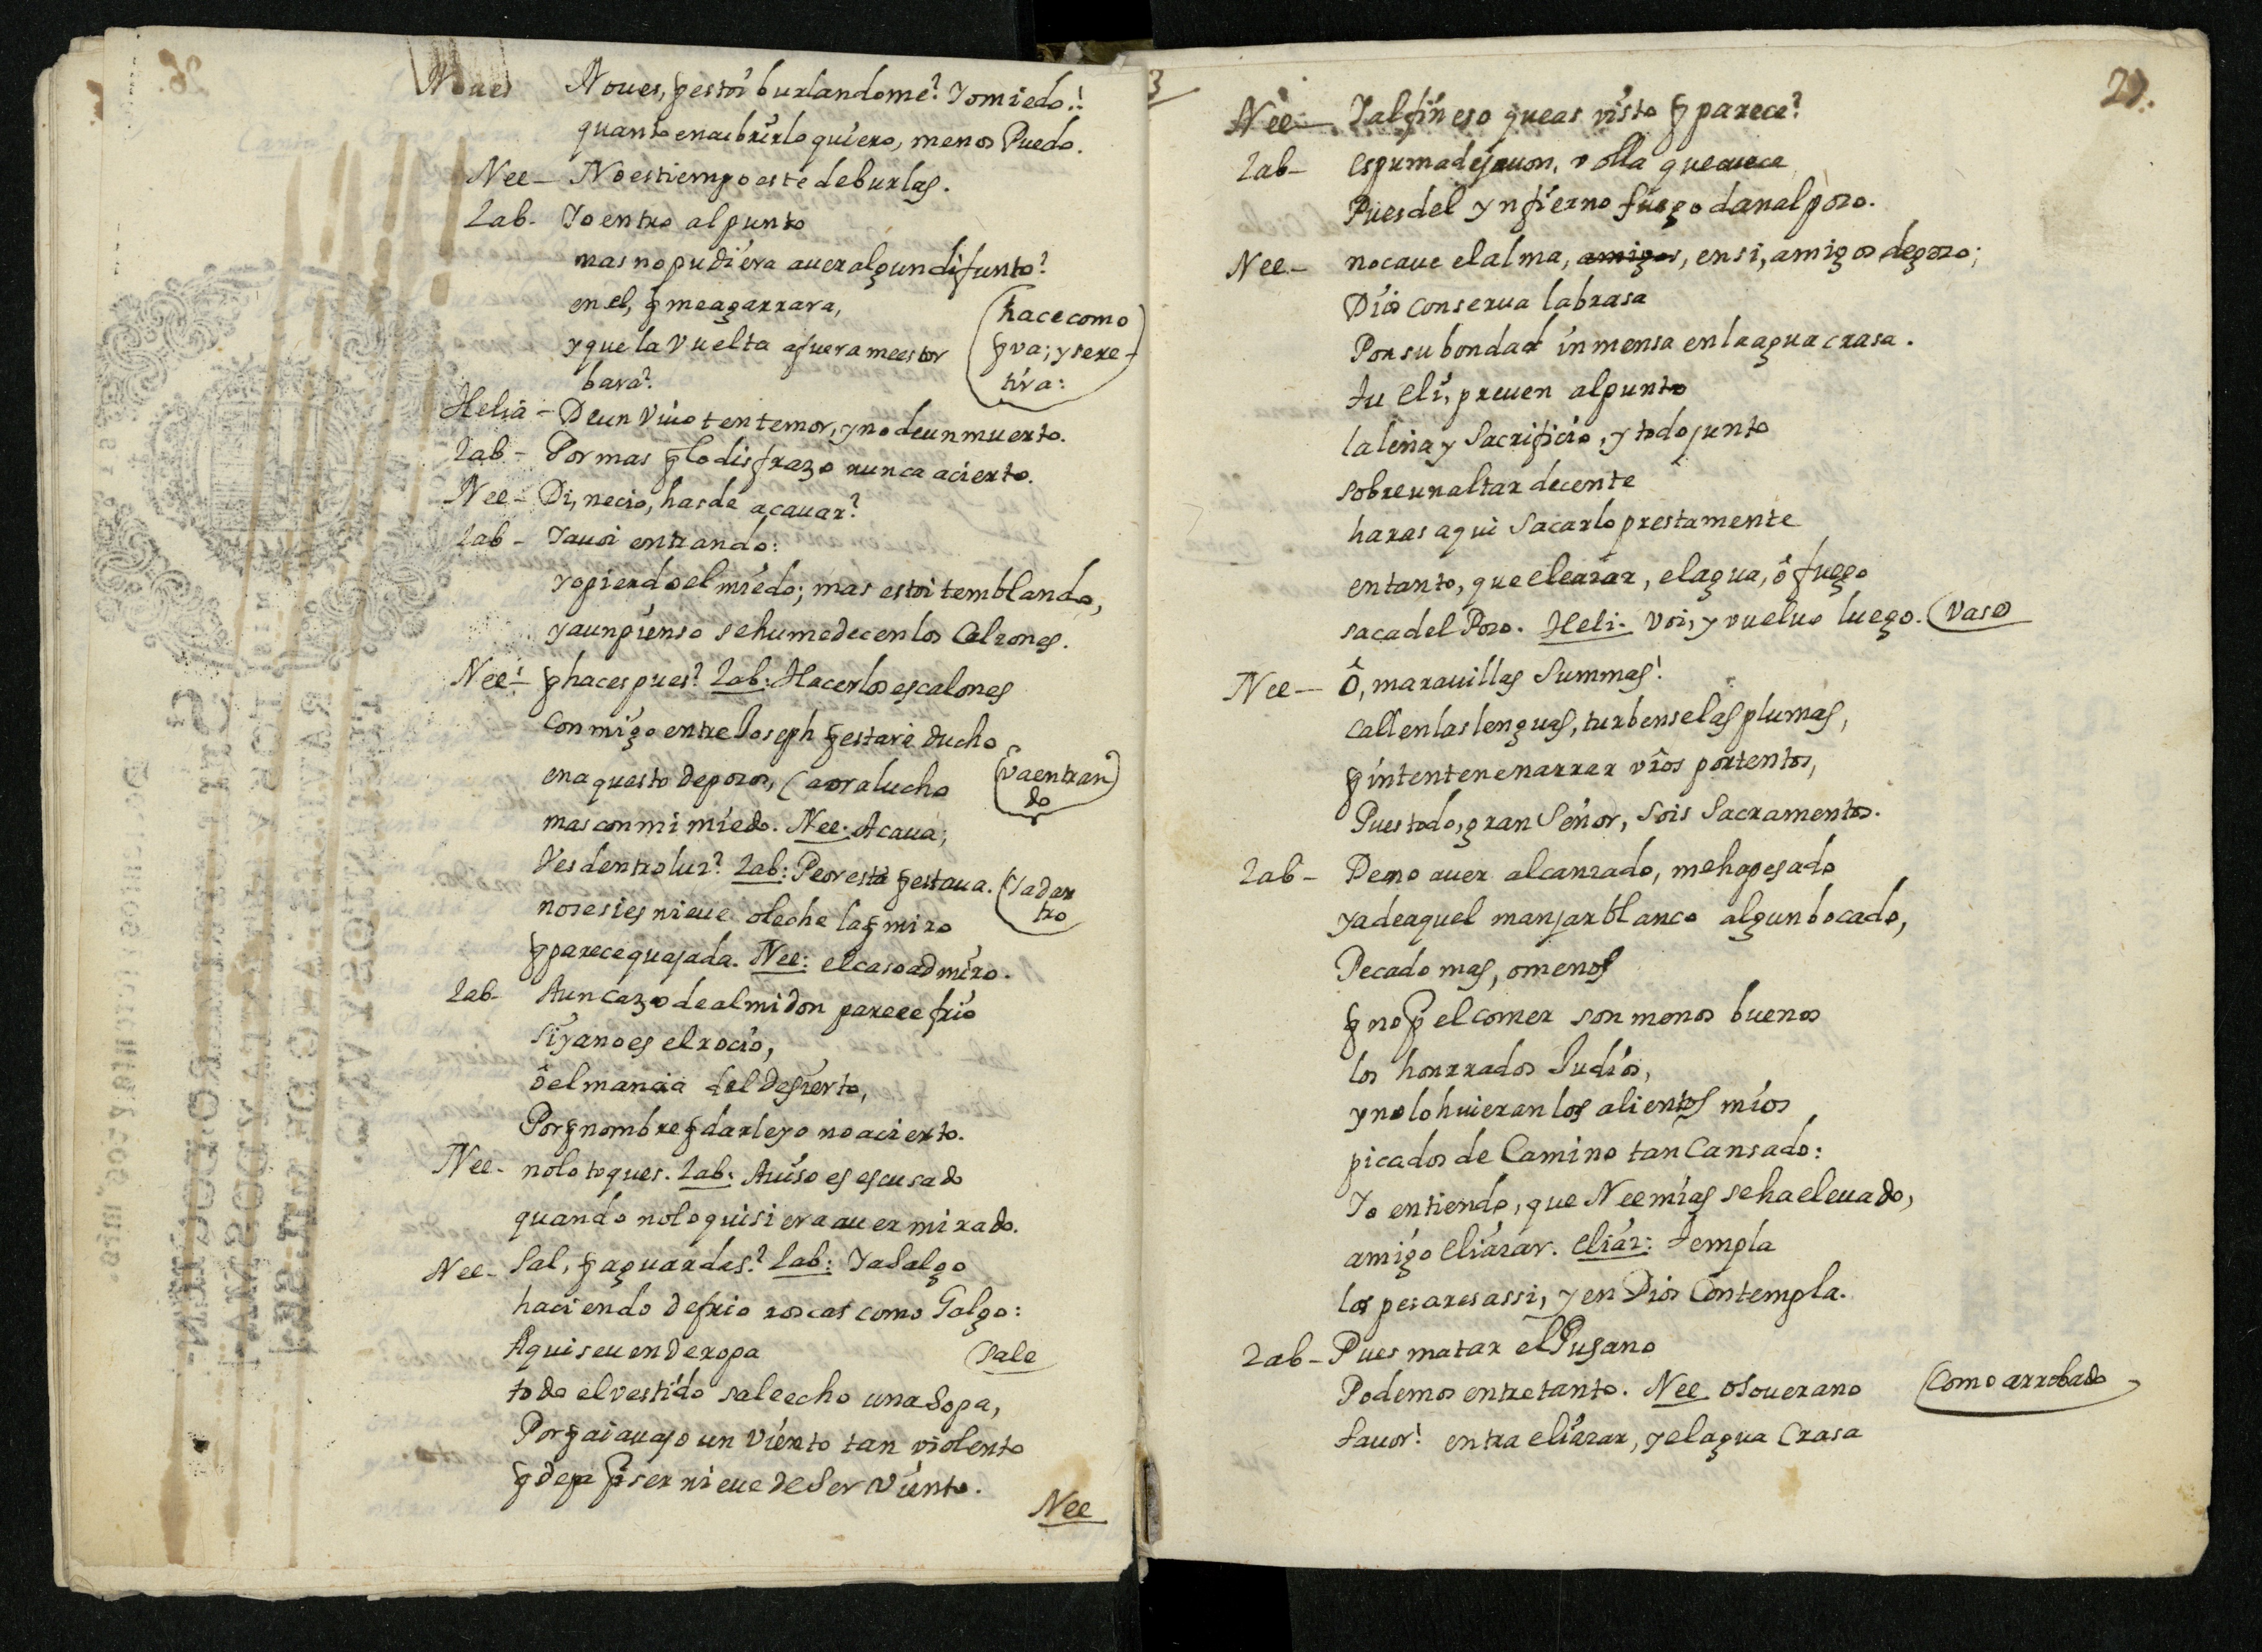 No ues, q estoi burlandome? Yo miedo!
quanto en aubrirlo quiero, menos Puedo.
Nee- No es tiempo este de burlas.
Zab- Yo entro al punto
mas no pudiera auer algun difunto?
en el, q me agarrara,
y que la vuelta afuera me estor
bara?
(hace como
q va; y se re-
tira:
Helia- De un viuo ten temor, y no de un muerto.
Zab- Por mas q lo disfrazo nunca acierto.
Nee- Di, necio, has de acauar?
Zab- Ya uoi entrando:
yo pierdo el miedo; mas estoi temblando,
y aun pienso se humedecen los Calzones.
Nee- q haces pues? Zab: Hacerlos escalones
conmigo entre Joseph q estare ducho
en aquesto de pozos, (aora lucho
(va entran
do
mas con mi miedo. Nee: Acaua;
Ves dentro luz? Zab: Peor está q estaua.
(Ya den
tro
no se si es nieue o leche la q miro
q parece quajada. Nee: el caso admiro.
Zab- Aun cazo de almidon parece frio
si ya no es el rocio,
ô el manaa del desierto,
Porq nombre q darle yo no acierto.
Nee- no lo toques. Zab: Auiso es escusado
quando no lo quisiera auer mirado.
Nee- Sal, q aguardas? Zab: Ya Salgo
haciendo de frio roscas como Galgo:
Aqui se uende ropa
Sale
todo el vestido sale echo una Sopa,
Porq ai auajo un viento tan violento
q deja p ser nieue de Ser viento.
Nee
29.
Nee- Y al fin eso que as visto q parece?
Zab- espuma de jauon, v olla que cuece
Pues del ynfierno fuego dan al pozo.
Nee- no caue el alma, amigos, en si, amigos de gozo;
Dios conserua la brasa
Por su bondad inmensa en la agua crasa.
tu Eli, preuen al punto
la leña y Sacrificio, y todo junto
sobre un altar decente
haras aqui Sacarlo prestamente
en tanto, que eleazar, el agua, ô fuego
saca del Pozo. Heli. Voi, y vueluo luego. (Vase
Nee- ô, marauillas Summas!
callen las lenguas, turbense las plumas,
q intenten enarrar vros portentos,
Pues todo, gran Señor, sois Sacramentos.
Zab- De no auer alcanzado, me ha pesado
ya de aquel manjar blanco algun bocado,
Pecado mas, o menos
q no p el comer son menos buenos
los honrrados Judios,
y no lo huieran los alientos mios
picados de Camino tan Cansado:
Yo entiendo, que Neemias se ha eleuado,
amigo Eliazar. eliaz: templa
los pesares assi, y en Dios Contempla.
Zab- Pues matar el Gusano
Podemos entretanto. Nee o Souerano
(Como arrobado
fauor! entra eliazar, y el agua Crasa